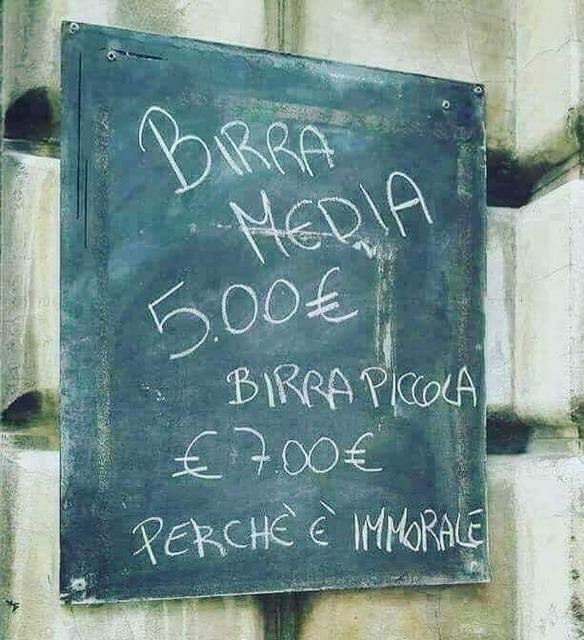 BIRRA
MEDIA
5.00€
BIRRA PICCOLA
€ 7.00€
PERCHÈ È IMMORALE